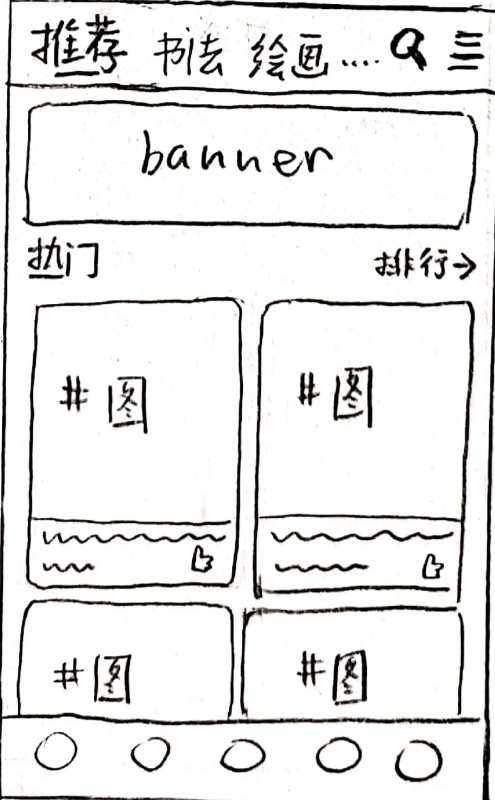 推荐 书法 绘画....
banner
热门 排行→
#图 #图
#图 #图